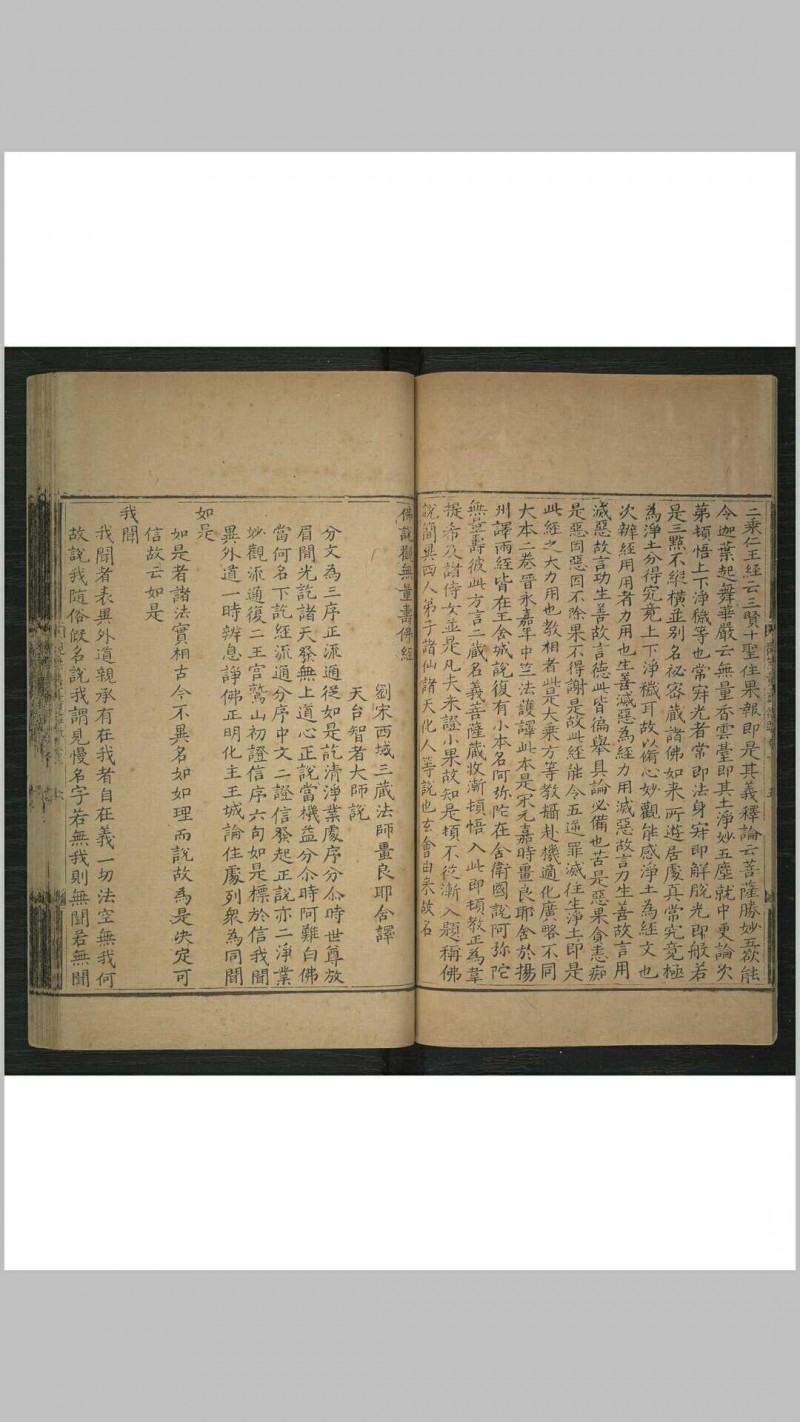 二乘仁王經云三賢十聖住果報即是其義釋論云菩薩勝妙五欲能
令迦葉起舞華嚴云無量香雲臺即其土淨妙五塵就中更論次
第頓悟上下淨穢等也常寂光者常即法身寂即解脫光即般若
是三點不縱橫並別名祕密藏諸佛如来所遊居處真常究竟極
為淨土分得究竟上下淨穢耳故以脩心妙觀能感淨土為經文也
次辨經用用者力用也生善滅惡為經力用滅惡故言力生善故言用
滅惡故言功生善故言德此皆徧舉具論必備也苦是惡果貪恚痴
是惡因惡因不除果不得謝是故此經能令五逆罪滅往生淨土即是
此經之大力用也教相者此是大乘方等教攝赴機適化廣略不同
大本二卷晉永嘉年中竺法護譯此本是宋元嘉時畺良耶舍於揚
州譯兩經皆在王舍城說復有小本名阿弥陀在舍衛國說阿弥陀
無量壽彼此方言二藏名義菩薩藏收漸頓悟入此即頓教正為韋
提希及諸侍女並是凡夫未證小果故知是頓不從漸入題稱佛
說簡異四人弟子諸仙諸天化人等說也玄會由来故名
佛說觀無量壽佛經
劉宋西域三藏法師畺良耶舍譯
天台智者大師說
分文為三序正流通從如是訖清淨業處序分尒時世尊放
眉間光訖諸天發無上道心正說當機益分尒時阿難白佛
當何名下訖經流通分序中文二證信發起正說亦二淨業
妙觀流通復二王宮鷲山初證信序六句如是標於信我聞
異外道一時辨息諍佛正明化主王城論住處列衆為同聞
如是
如是者諸法實相古今不異名如如理而說故為是决定可
信故云如是
我聞
我聞者表異外道親承有在我者自在義一切法空無我何
故說我隨俗假名說我謂見慢名字若無我則無聞若無聞